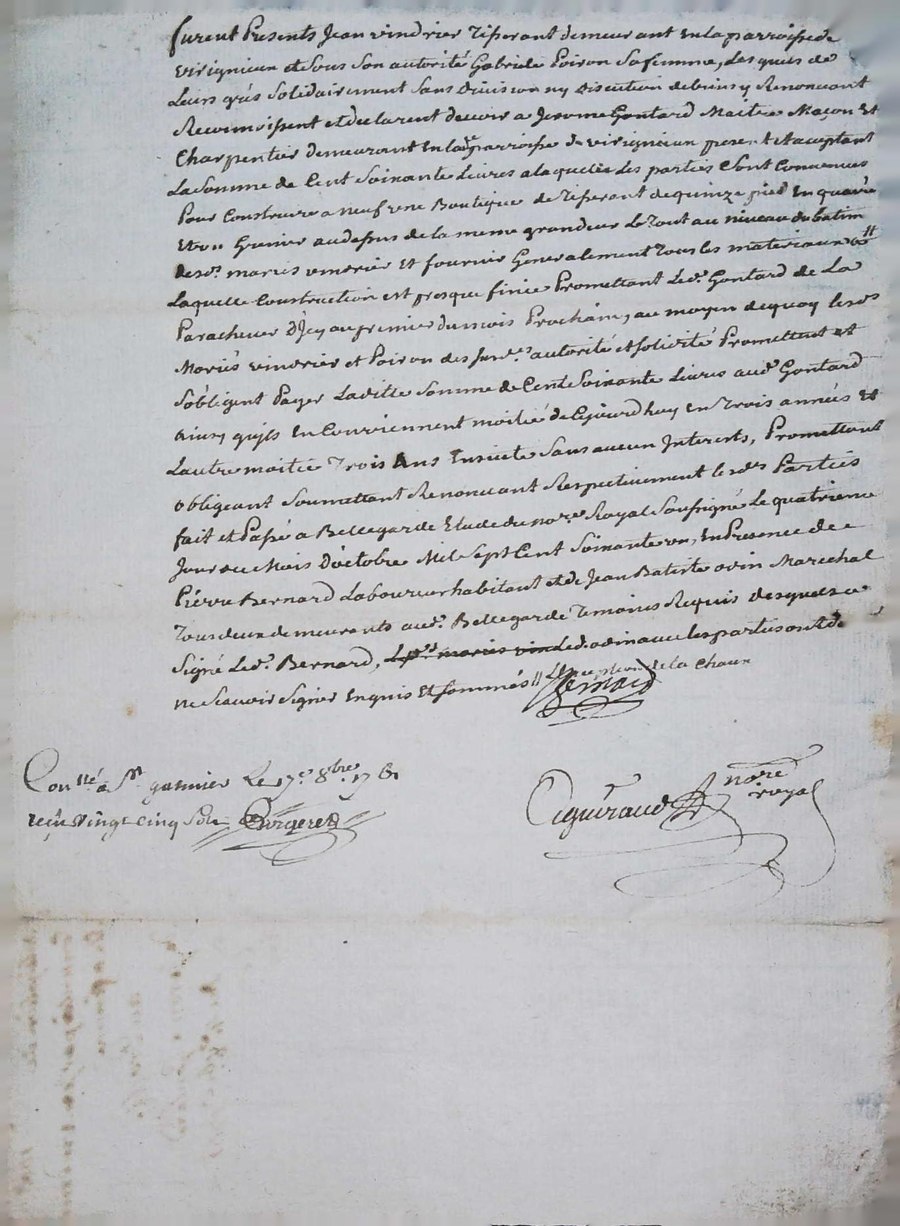 furent Presents Jean vindrier Tisserant demeurant En la parroisse de
virignieux et Sous Son autorité Gabriele Poiron Sa femme, Lesquels de
Leurs grés Solidairement Sans Division ny Discution de biens y Renoncant
Reconnoissent et declarent devoir a Jerome Gontard Maitre Maçon Et
Charpentier demeurant En lade parroisse de virignieux present et acceptant
La Somme de Cent Soixante Livres a laquelle les parties Sont Convenues
Pour Construire a Neuf une Boutique de Tisserant de quinze pied En quarré
Et un Grenier au dessus de la meme grandeur Le Tout au niveau du batim
desds. mariés vindrier Et fournir Generalement Tous les materiaux //
Laquelle Construction est presque finie Promettant Led. Gontard de La
Parachever D'Jcy au premier du mois Prochain, au moyen de quoy lesds
Mariés vindrier et Poiron des Susdes autorité et Solidité Promettent et
S'obligent Payer Laditte Somme de Cent Soixante Livres aud. Gontard
ainsy qu'jls En Conviennent moitié de Cejourd'huy en Trois années et
Lautre moitié Trois Ans Ensuite Sans aucun Interets, Promettant
obligeant Soumettant Renoncant Respectivement lesds Parties
fait et Passé a Bellegarde Etude du nore. Royal Soussigné Le quatrieme
Jour du Mois D'octobre Mil Sept Cent Soixante un, En Presence de
Pierre Bernard Laboureur habitant et de Jean Batiste odin Marechal
Tous deux demeurants aud. Bellegarde Temoins Requis desquels a
Signé Led. Bernard, Led. odin avec les parties ont dt
ne Scavoir Signer Enquis Et Sommés // La Chaux
Bernard
Conllé a St galmier Le 17e 8bre 1761
reçu vingt cinq Sols Bergeret
Eyguiraud nore
royal